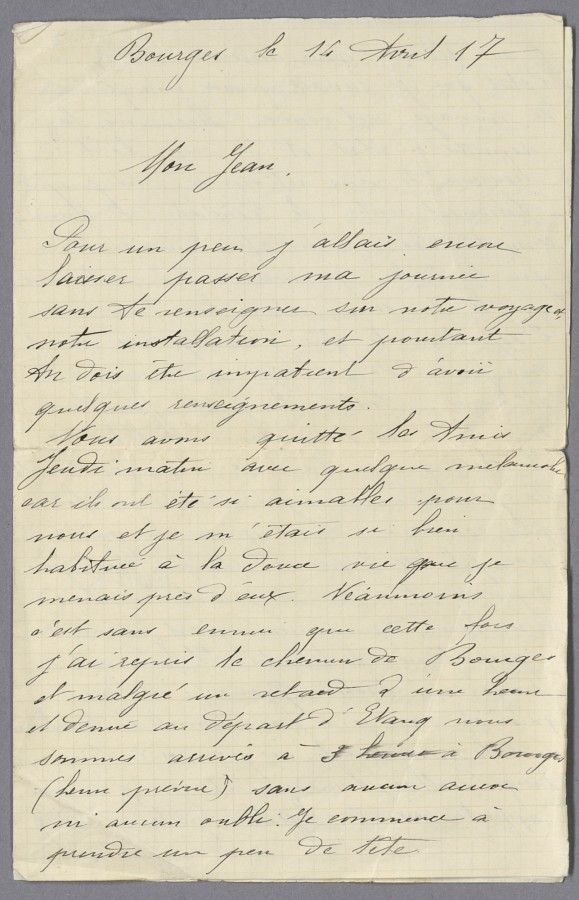 Bourges le 14 Avril 17
Mon Jean.
Pour un peu j'allais encore
laisser passer ma journée
sans te renseigner sur notre voyage et
notre installation, et pourtant
tu dois être impatient d'avoir
quelques renseignements.
Nous avons quitté les Amis
Jeudi matin avec quelque mélancolie
car ils ont été si aimables pour
nous et je m'étais si bien
habituée à la douce vie que je
menais près d'eux. Néanmoins
c'est sans ennui que cette fois
j'ai repris le chemin de Bourges
et malgré un retard d'une heure
et demie au départ d'Etang nous
sommes arrivés à 5 heures à Bourges
(heure prévue) sans aucun
ni aucun oubli. Je commence à
prendre un peu de tête